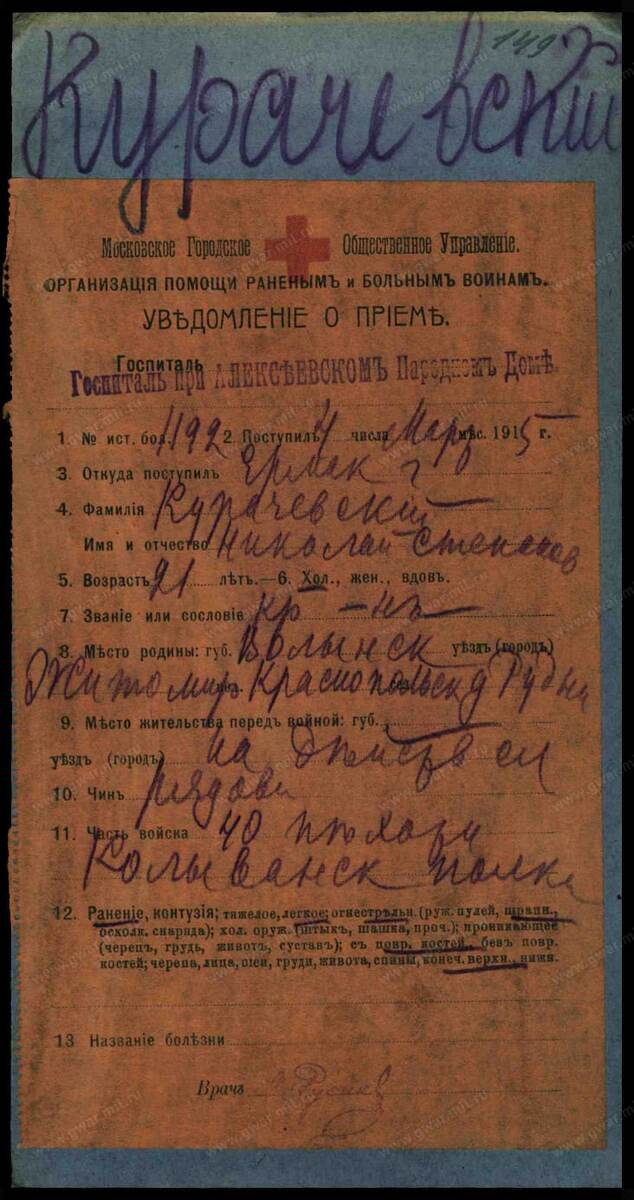 149
Курачевский
Московское Городское Общественное Управленіе.
ОРГАНИЗАЦІЯ ПОМОЩИ РАНЕНЫМЪ и БОЛЬНЫМЪ ВОИНАМЪ.
УВѢДОМЛЕНІЕ О ПРІЕМѢ.
Госпиталь
Госпиталь при АЛЕКСѢЕВСКОМЪ Народномъ Домѣ
1. № ист. бол. 4192 2. Поступилъ 4 числа Март мѣс. 1915 г.
3. Откуда поступилъ Ермак
4. Фамилія Курачевский
Имя и отчество Николай Степанов
5. Возрастъ 21 лѣтъ.—6. Хол., жен., вдов.
7. Званіе или сословіе кр-нъ
8. Мѣсто родины: губ. Волынск уѣздъ (городъ)
Житомир Краснопольск д Рудня
9. Мѣсто жительства передъ войной: губ.
уѣздъ (городъ) на дѣйств
10. Чинъ рядовой
11. Часть войска 40 пѣхотн
Колыванск полка
12. Раненіе, контузія; тяжелое, легкое; огнестрѣльн. (руж. пулей, шрапн.,
осколк. снаряда); хол. оруж. (штыкъ, шашка, проч.); проникающее
(черепъ, грудь, животъ, суставъ); съ повр. костей, безъ повр.
костей; черепа, лица, шеи, груди, живота, спины, конеч. верхн., нижн.
13 Названіе болѣзни
Врачъ
www.gwar.mil.ru